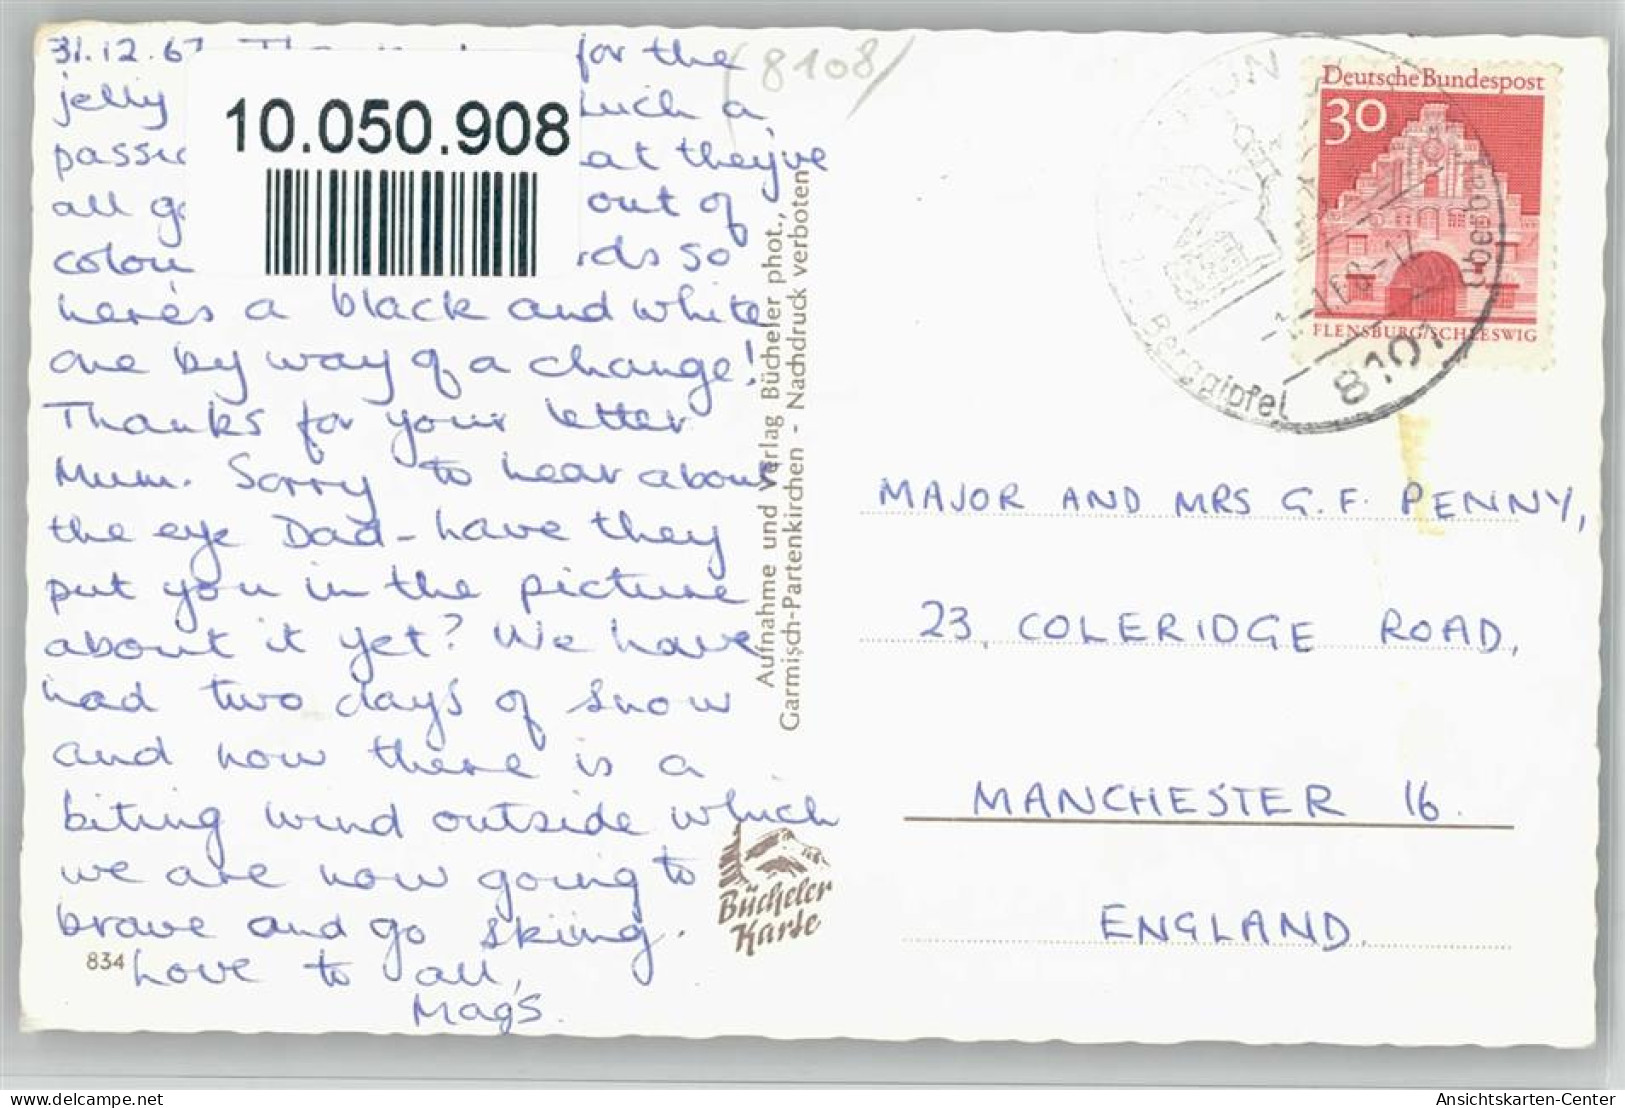 31.12.67 for the
jelly such a
at they've
all out of
so
here's a black and white
one by way of a change!
Thanks for your letter
Mum. Sorry to hear about
the eye Dad - have they
put you in the picture
about it yet? We have
had two days of snow
and now there is a
biting wind outside which
we are now going to
brave and go skiing.
Love to all,
Mags.
834
10.050.908
(8108)
Aufnahme und Verlag Bücheler phot.,
Garmisch-Partenkirchen - Nachdruck verboten
Bücheler
Karte
Deutsche Bundespost
30
FLENSBURG/SCHLESWIG
Berggipfel
8101
MAJOR AND MRS G.F. PENNY,
23, COLERIDGE ROAD,
MANCHESTER 16.
ENGLAND.
www.ansichtskarten-center.de
Ansichtskarten-Center